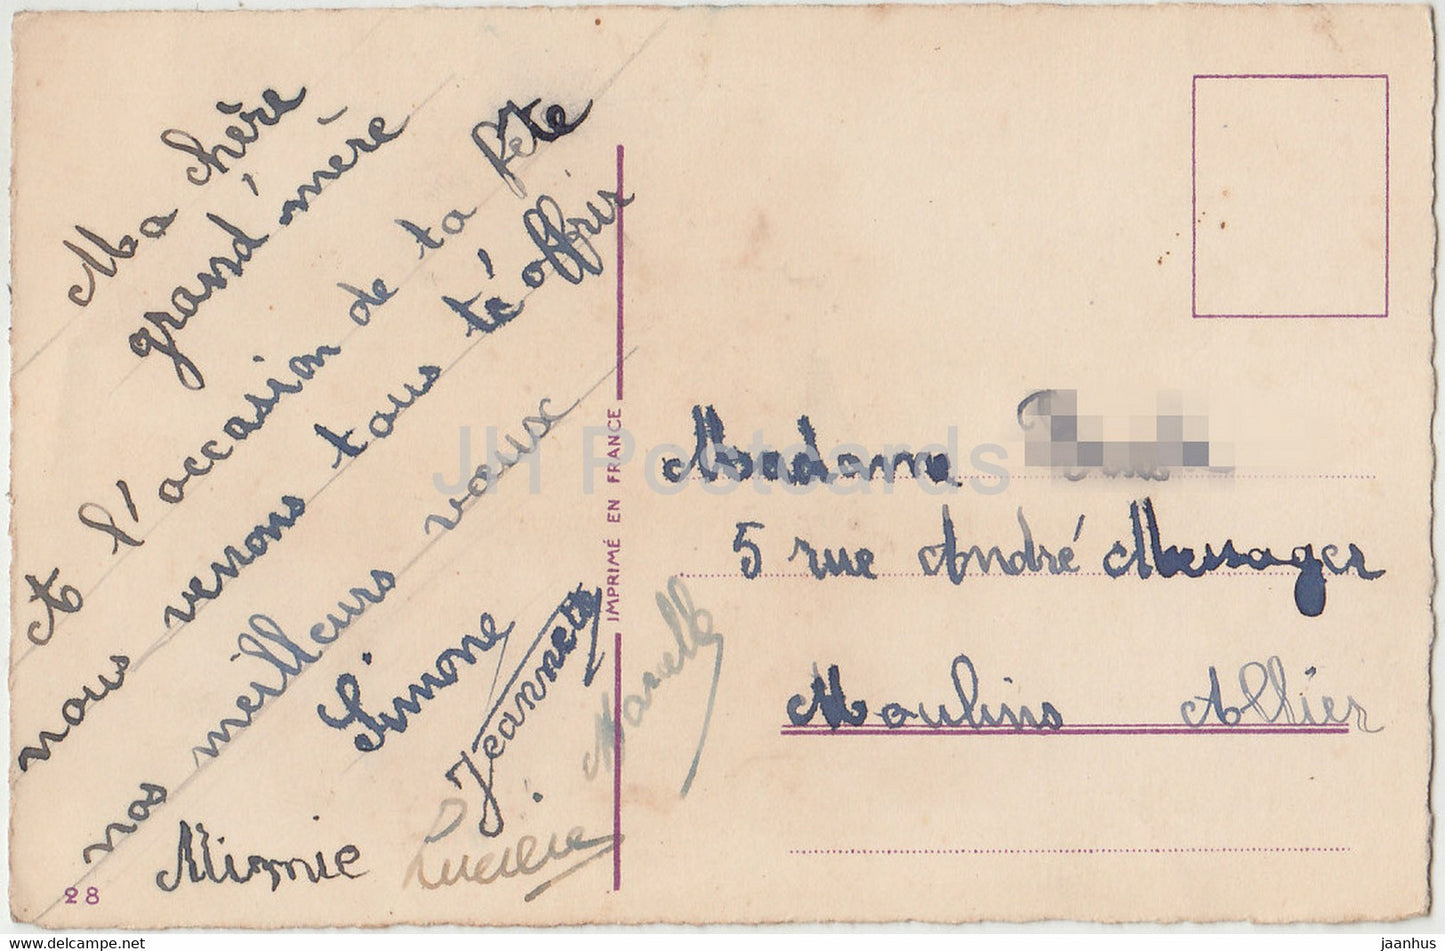 Ma chère
grand' mère
et l'occasion de ta fête
nous venons tous te' offrir
nos meilleurs voeux
Simone
Jeannette
Marcelle
Mimie
Lucienne
28
IMPRIMÉ EN FRANCE
Madame
5 rue André Messager
Moulins Allier
JH Postcards
www.delcampe.net
jaanhus